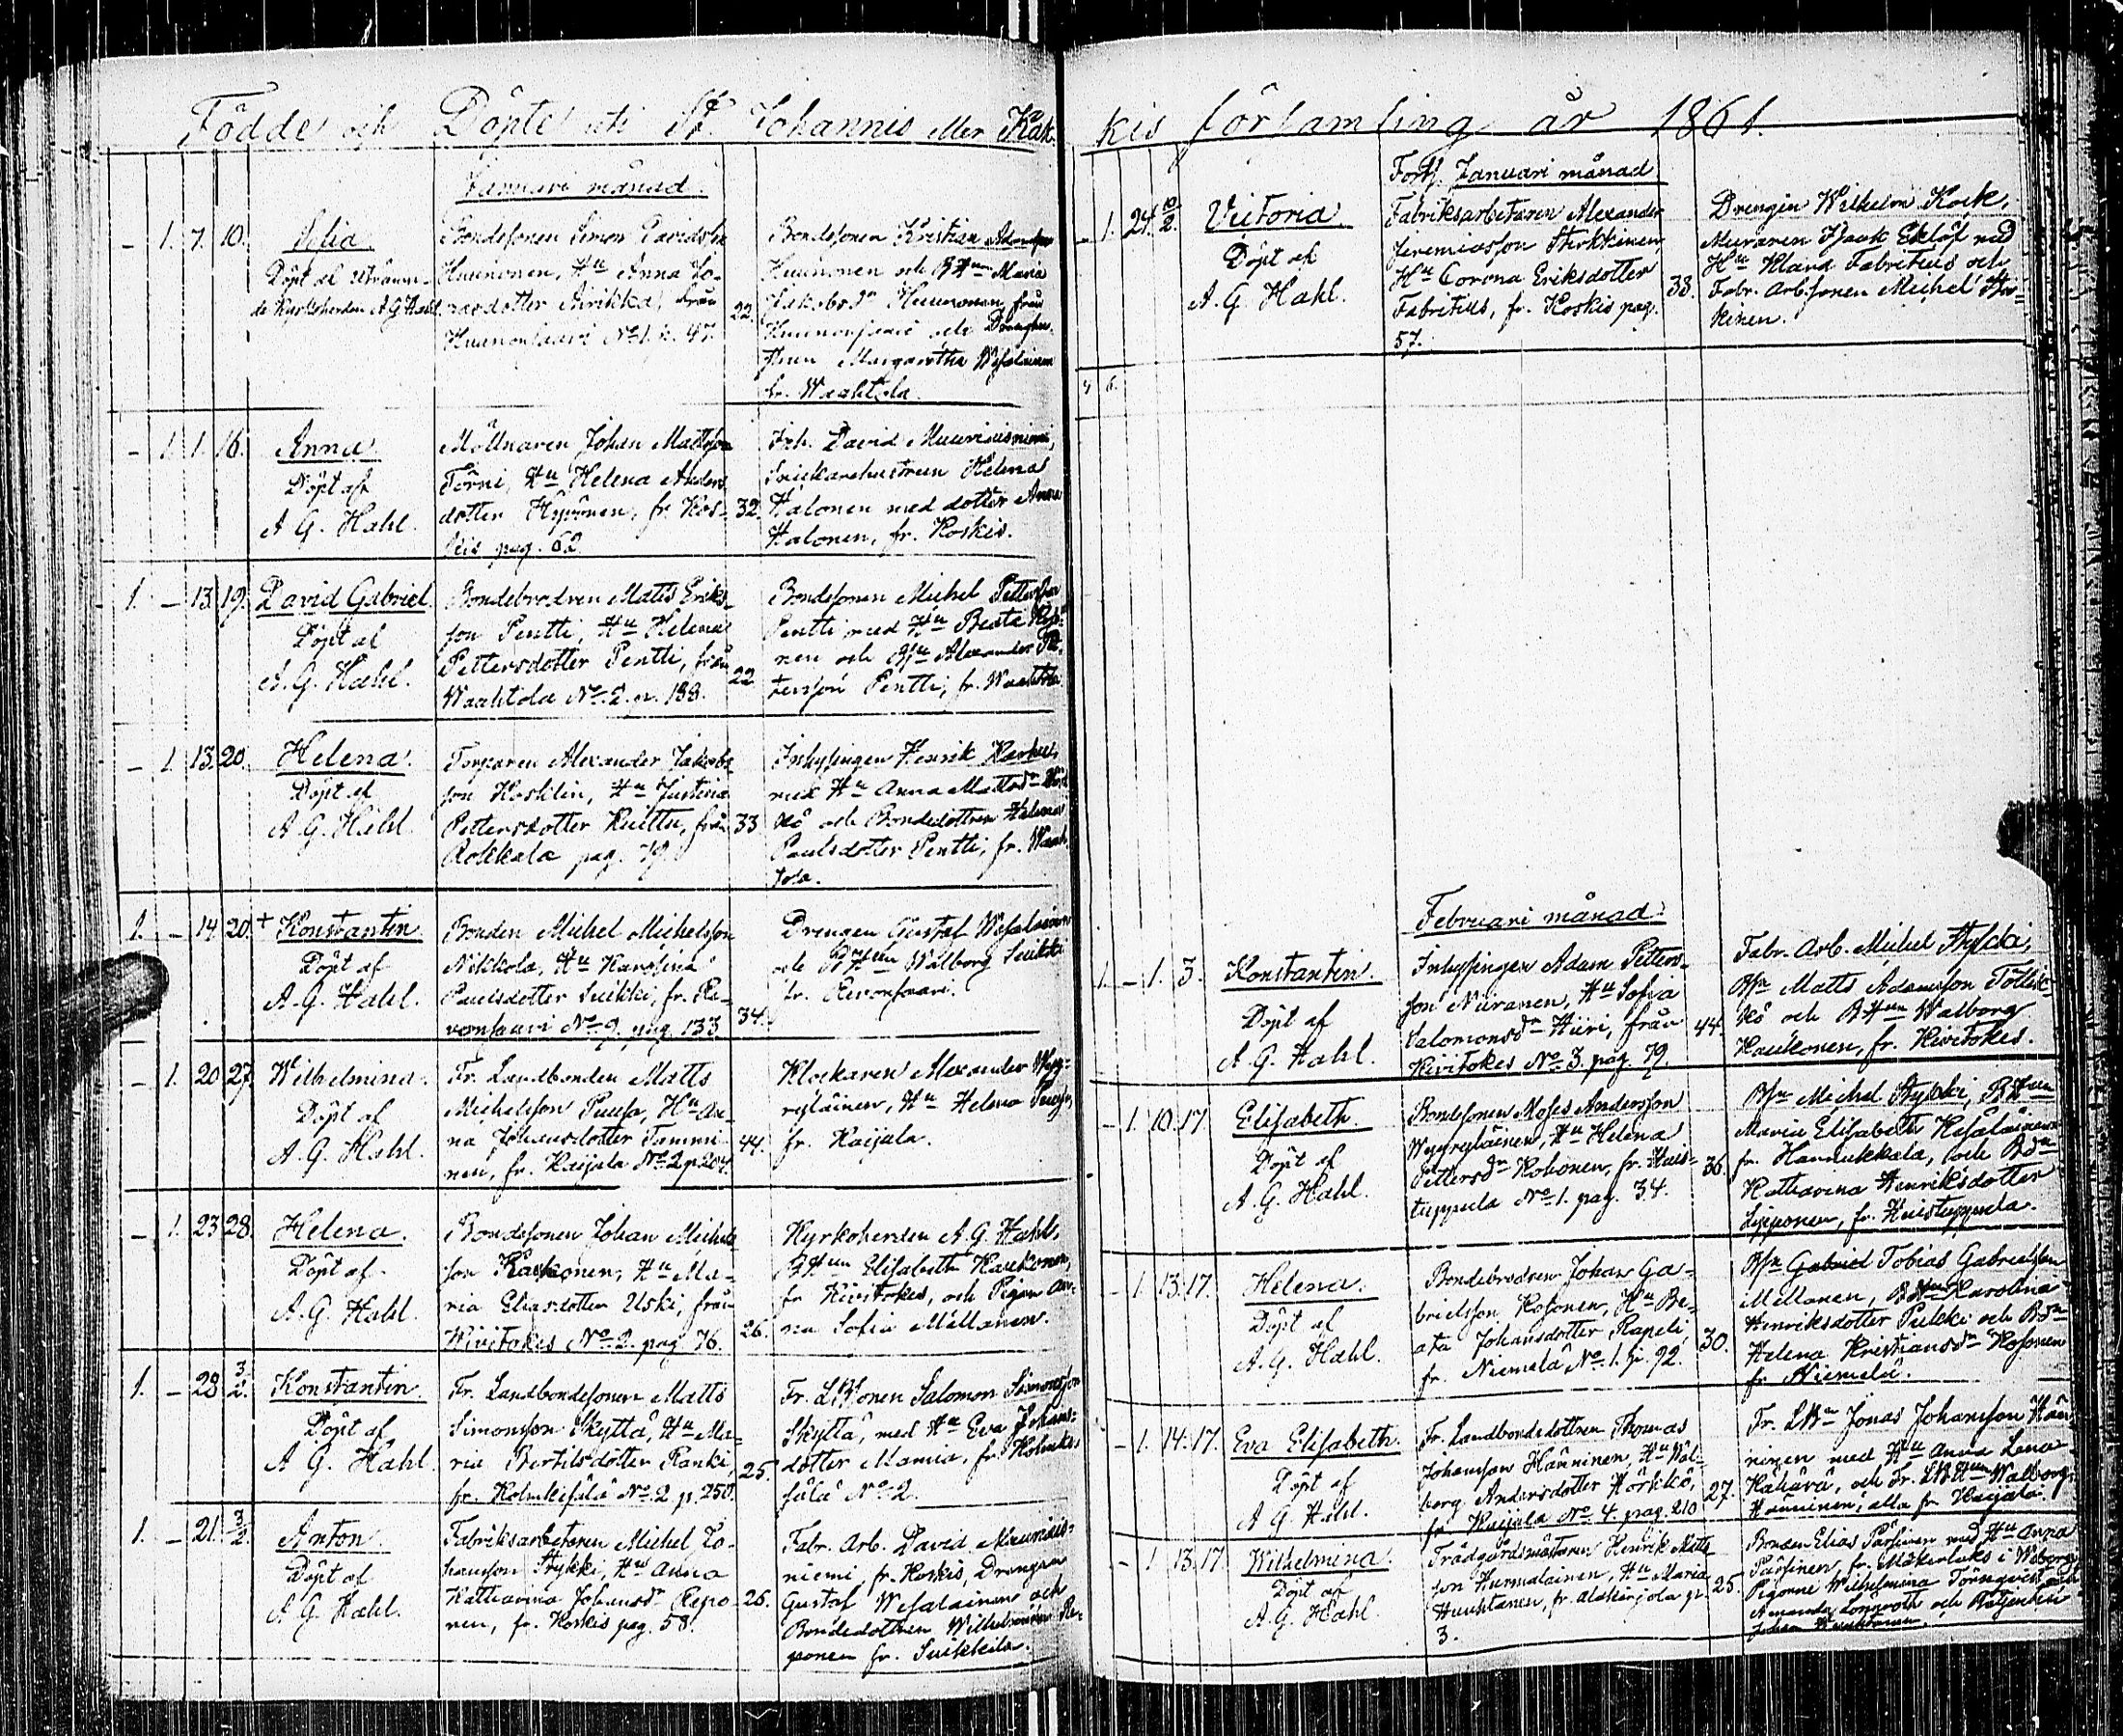 Födde och Döpte uti St. Johannis eller Kak-
Januari månad.
- 1. 7. 10.
Döpt af
de Kyrkoherden A G Hahl.
Bondesonen Simon Davidsson
Huunonen, Hu Anna Jo-
från
Huunonsaari No 1. p. 97.
22.
Bondesonen Kristian
Huunonen och BHun Maria
Jakobsdr Huunonen från
Huunonsaari och
Margaretha Wesalainen
fr. Waahtola.
- 1. 1. 16.
Anna
Döpt af
A G. Hahl.
Möllnaren Johan Mattsson
Törni, Hu Helena Anders
dotter Hyvönen, fr. Kos-
kis pag. 62
32.
Inh. David Mauriusniemi,
Snickarehustrun Helena
Halonen med dotter Anna
Halonen, fr. Koskis.
1. - 13. 19.
David Gabriel.
Döpt af
A. G. Hahl.
Bondebrodren Matts Eriks-
son Pentti, Hu Helena
Pettersdotter Pentti, från
Waahtola No 2. p. 188.
22
Bondesonen Michel Pettersson
Pentti med Hu Beata
nen och Bsn Alexander Pet-
tersson Pentti, fr. Waahtola.
- 1. 13. 20.
Helena.
Döpt af
A. G. Hahl.
Torparen Alexander Jakobs
son Kosklin, Hu Justina
Pettersdotter Ruittu, från
Rokkala pag. 79.
33
Inhysingen Henrik
med Hu Anna Mattsdr
kö och Bondedottren Helena
Paulsdotter Pentti, fr. Waah-
tola.
1. - 14. 20. +
Konstantin.
Döpt af
A. G. Hahl.
Bonden Michel Michelsson
Nikkola, Hu Karolina
Paulsdotter Suikki, fr. Re-
vonsaari No 9. pag. 133
34.
Drengen Gustaf Wesalainen
och BHun Walborg Suikki
fr. Revonsaari.
- 1. 20. 27.
Wilhelmina.
Döpt af
A. G. Hahl.
Fr. Landbonden Matts
Michelsson Puusa, Hu An-
na Johansdotter Tammi-
nen, fr. Kaijala No 2 p 204.
44.
Klockaren Alexander Wep-
sylainen, Hu Helena
fr. Kaijala.
- 1. 23. 28.
Helena.
Döpt af
A. G. Hahl.
Bondesonen Johan Michels
son Kaukonen, Hu Ma-
ria Eliasdotter Uski, från
Kivitokes No 2. pag 76.
26.
Kyrkoherden A. G. Hahl,
BHun Elisabeth Kaukonen,
fr. Kivitokes, och Pigan An-
na Sofia Mellanen.
1. - 28. 3/2.
Konstantin.
Döpt af
A G. Hahl.
Fr. Landbondesonen Matts
Simonsson Skyttä, Hu Ma-
ria Bertilsdotter Ranki,
fr. Kolmkesälä No 2 p. 250.
25.
Fr. LBsonen Salomon Simonsson
Skyttä, med Hu Eva Johans-
dotter Mannia, fr. Kolmke-
sälä No 2.
1. - 21. 3/2.
Anton.
Döpt af
A G. Hahl.
Fabriksarbetaren Michel Jo-
hansson Stykki, Hu Anna
Katharina Johansdr Repo-
nen, fr. Koskis pag. 58.
26.
Fabr. Arb. David Maurius-
niemi, fr. Koskis, Drengen
Gustaf Wesalainen och
Bondedottren Wilhelmina Re-
ponen fr. Suikkila.
kis församling år 1861.
Forts. Januari månad
- 1. 24. 10/2.
Victoria.
Döpt af
A. G. Hahl.
Fabriksarbetaren Alexander
Jeremiasson Stirkkinen,
Hu Corona Eriksdotter
Fabritius, fr. Koskis pag.
57.
33.
Drengen Wilhelm Kock,
Muraren Isaak Eklöf med
Hu Klara Fabritius och
Fabr. Arb.sonen Michel Stir-
kinen.
4 6.
Februari månad.
1. - 1. 3.
Konstantin.
Döpt af
A. G. Hahl.
Inhysingen Adam Petters-
son Niiranen, Hu Sofia
Salomonsdr Hiiri, från
Kivitokes No 3. pag. 79.
44.
Fabr. Arb. Michel Stykki,
Bsn Matts Adamsson Töllik-
kö och BHun Walborg
Kaukonen, fr. Kivitokes.
- 1. 10. 17.
Elisabeth.
Döpt af
A. G. Hahl.
Bondesonen Moses Andersson
Wepsylainen, Hu Helena
Pettersdr Kohonen, fr. Kuis-
tuppula No 1. pag. 34.
36.
Bsn Michel Stykki, BHun
Maria Elisabeth Kesäläinen
fr. Hannukkala, och Bdn
Katharina Henriksdotter
Lipponen, fr. Kuistuppula.
- 1. 13. 17.
Helena.
Döpt af
A. G. Hahl.
Bondebrodren Johan Ga-
brielsson Kosonen, Hu Be-
ata Johansdotter Rapeli,
fr. Niemelä No 1. p. 92.
30.
Bsn Gabriel Tobias Gabrielsson
Mellanen, BHun Karolina
Henriksdotter Pukki och Bdn
Helena Kristiansdr Kosonen
fr Niemelä.
- 1. 14. 17.
Eva Elisabeth.
Döpt af
A G. Hahl.
Fr. Landbondedottren Thomas
Johansson Hänninen, Hu Wal-
borg Andersdotter Hörkkö,
fr Kaijala No 4. pag. 210
27.
Fr. LBn Jonas Johansson Hän-
ninen med Hu Anna Lena
Kähärä, och Fr. LBHun Walborg
Hänninen, alla fr Kaijala.
- 1. 13. 17.
Wilhelmina.
Döpt af
A. G. Hahl.
Trädgårdsmästaren Henrik Matts
son Kurmalainen, Hu Maria
Huuhtanen, fr. Alakirjola p.
3.
25.
Bonden Elias Pärssinen med Hu Anna
Pärssinen, fr. Makerlaks i Wiborg,
Pigorne Wilhelmina Törnqvist och
Amanda Lönnroth och
Johan Huuhtanen.